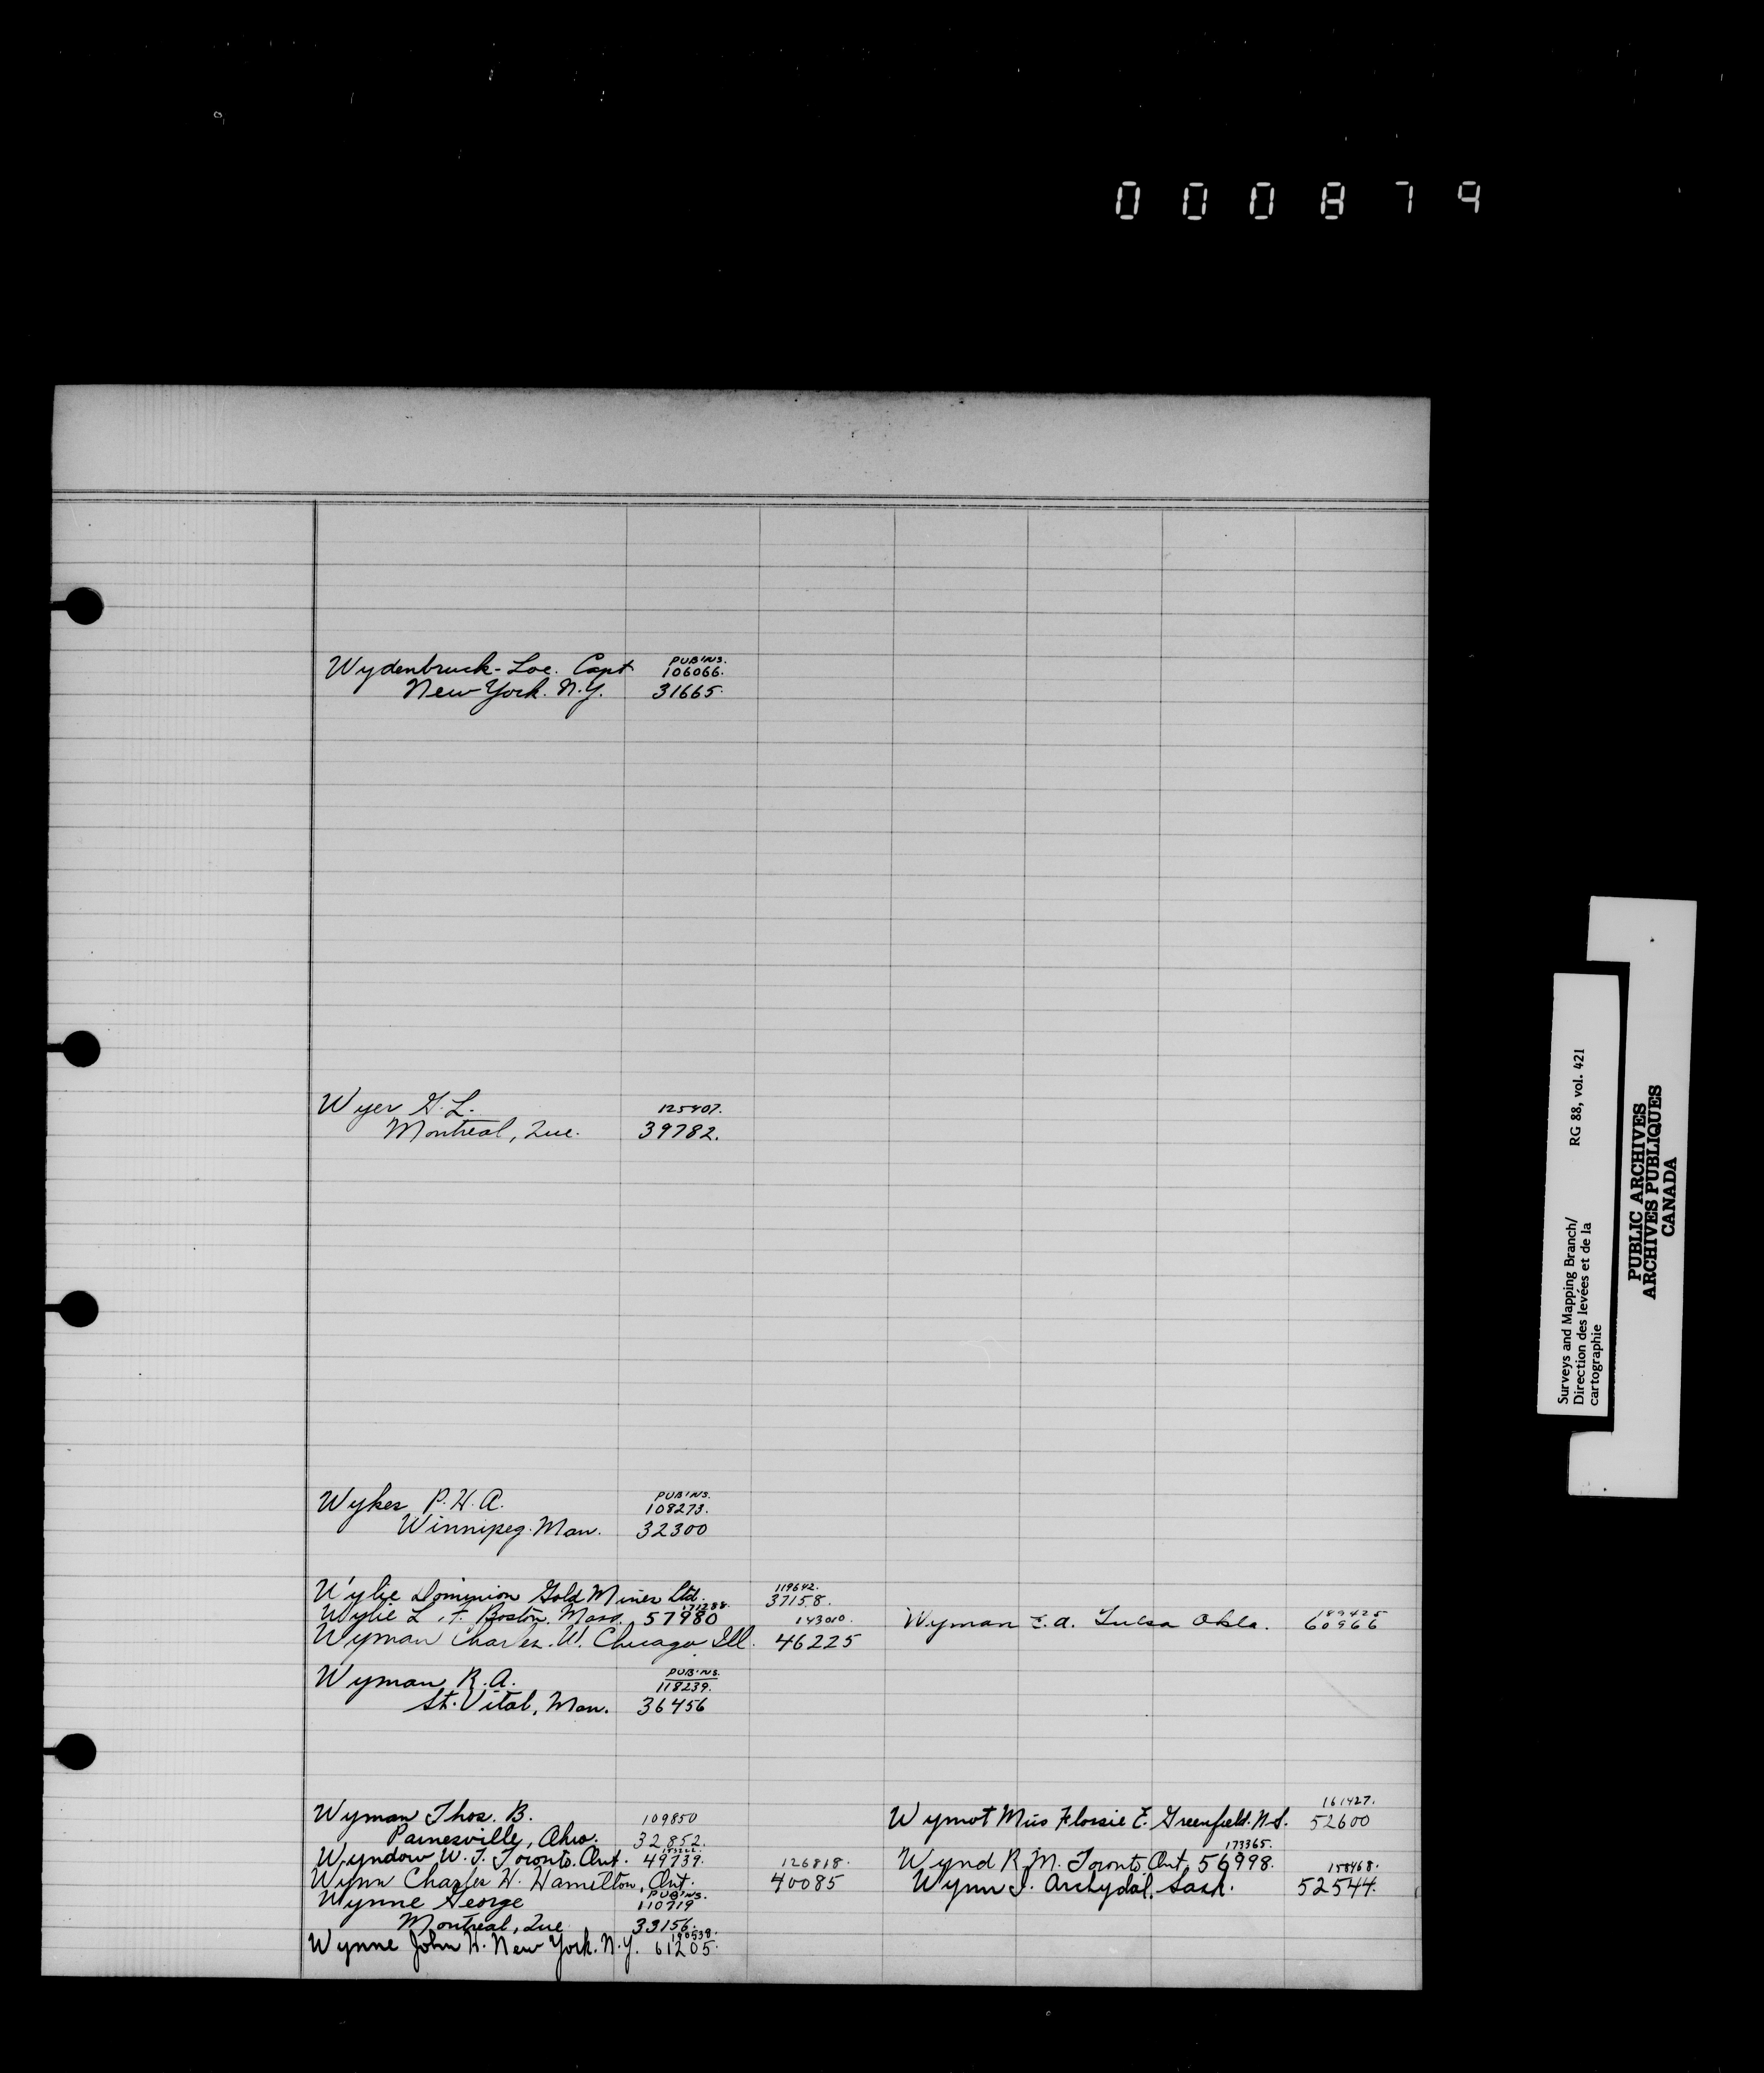 000879
Wydenbruck-Loe. Capt PUB'NS. 106066.
New York. N.Y. 31665.
Wyer G.L. 125407.
Montreal, Que. 39782.
Wykes P.H.A. PUB'NS. 108273.
Winnipeg. Man. 32300
Wylie Dominion Gold Mines Ltd. 119642. 37158.
Wylie L. F. Boston. Mass. 57980 143010.
Wyman Charles. W. Chicago Ill. 46225
Wyman E.A. Tulsa Okla. 189425 60966
Wyman R.A. PUB'NS. 118239.
St. Vital, Man. 36456
Wyman Thos. B. 109850
Painesville, Ohio. 32852.
Wyndow W.J. Toronto. Ont. 49739.
Wynn Charles H. Hamilton, Ont. 126818. 40085
Wynne George PUB'NS. 110719
Montreal, Que 33156.
Wynne John H. New York. N.Y. 190538. 61205.
Wymot Miss Flossie E. Greenfield. N.S. 161427. 52600
Wynd R.M. Toronto. Ont. 173365. 56998.
Wynn J. Archydal. Sask. 158468. 52544.
Surveys and Mapping Branch/ RG 88, vol. 421
Direction des levées et de la
cartographie
PUBLIC ARCHIVES
ARCHIVES PUBLIQUES
CANADA